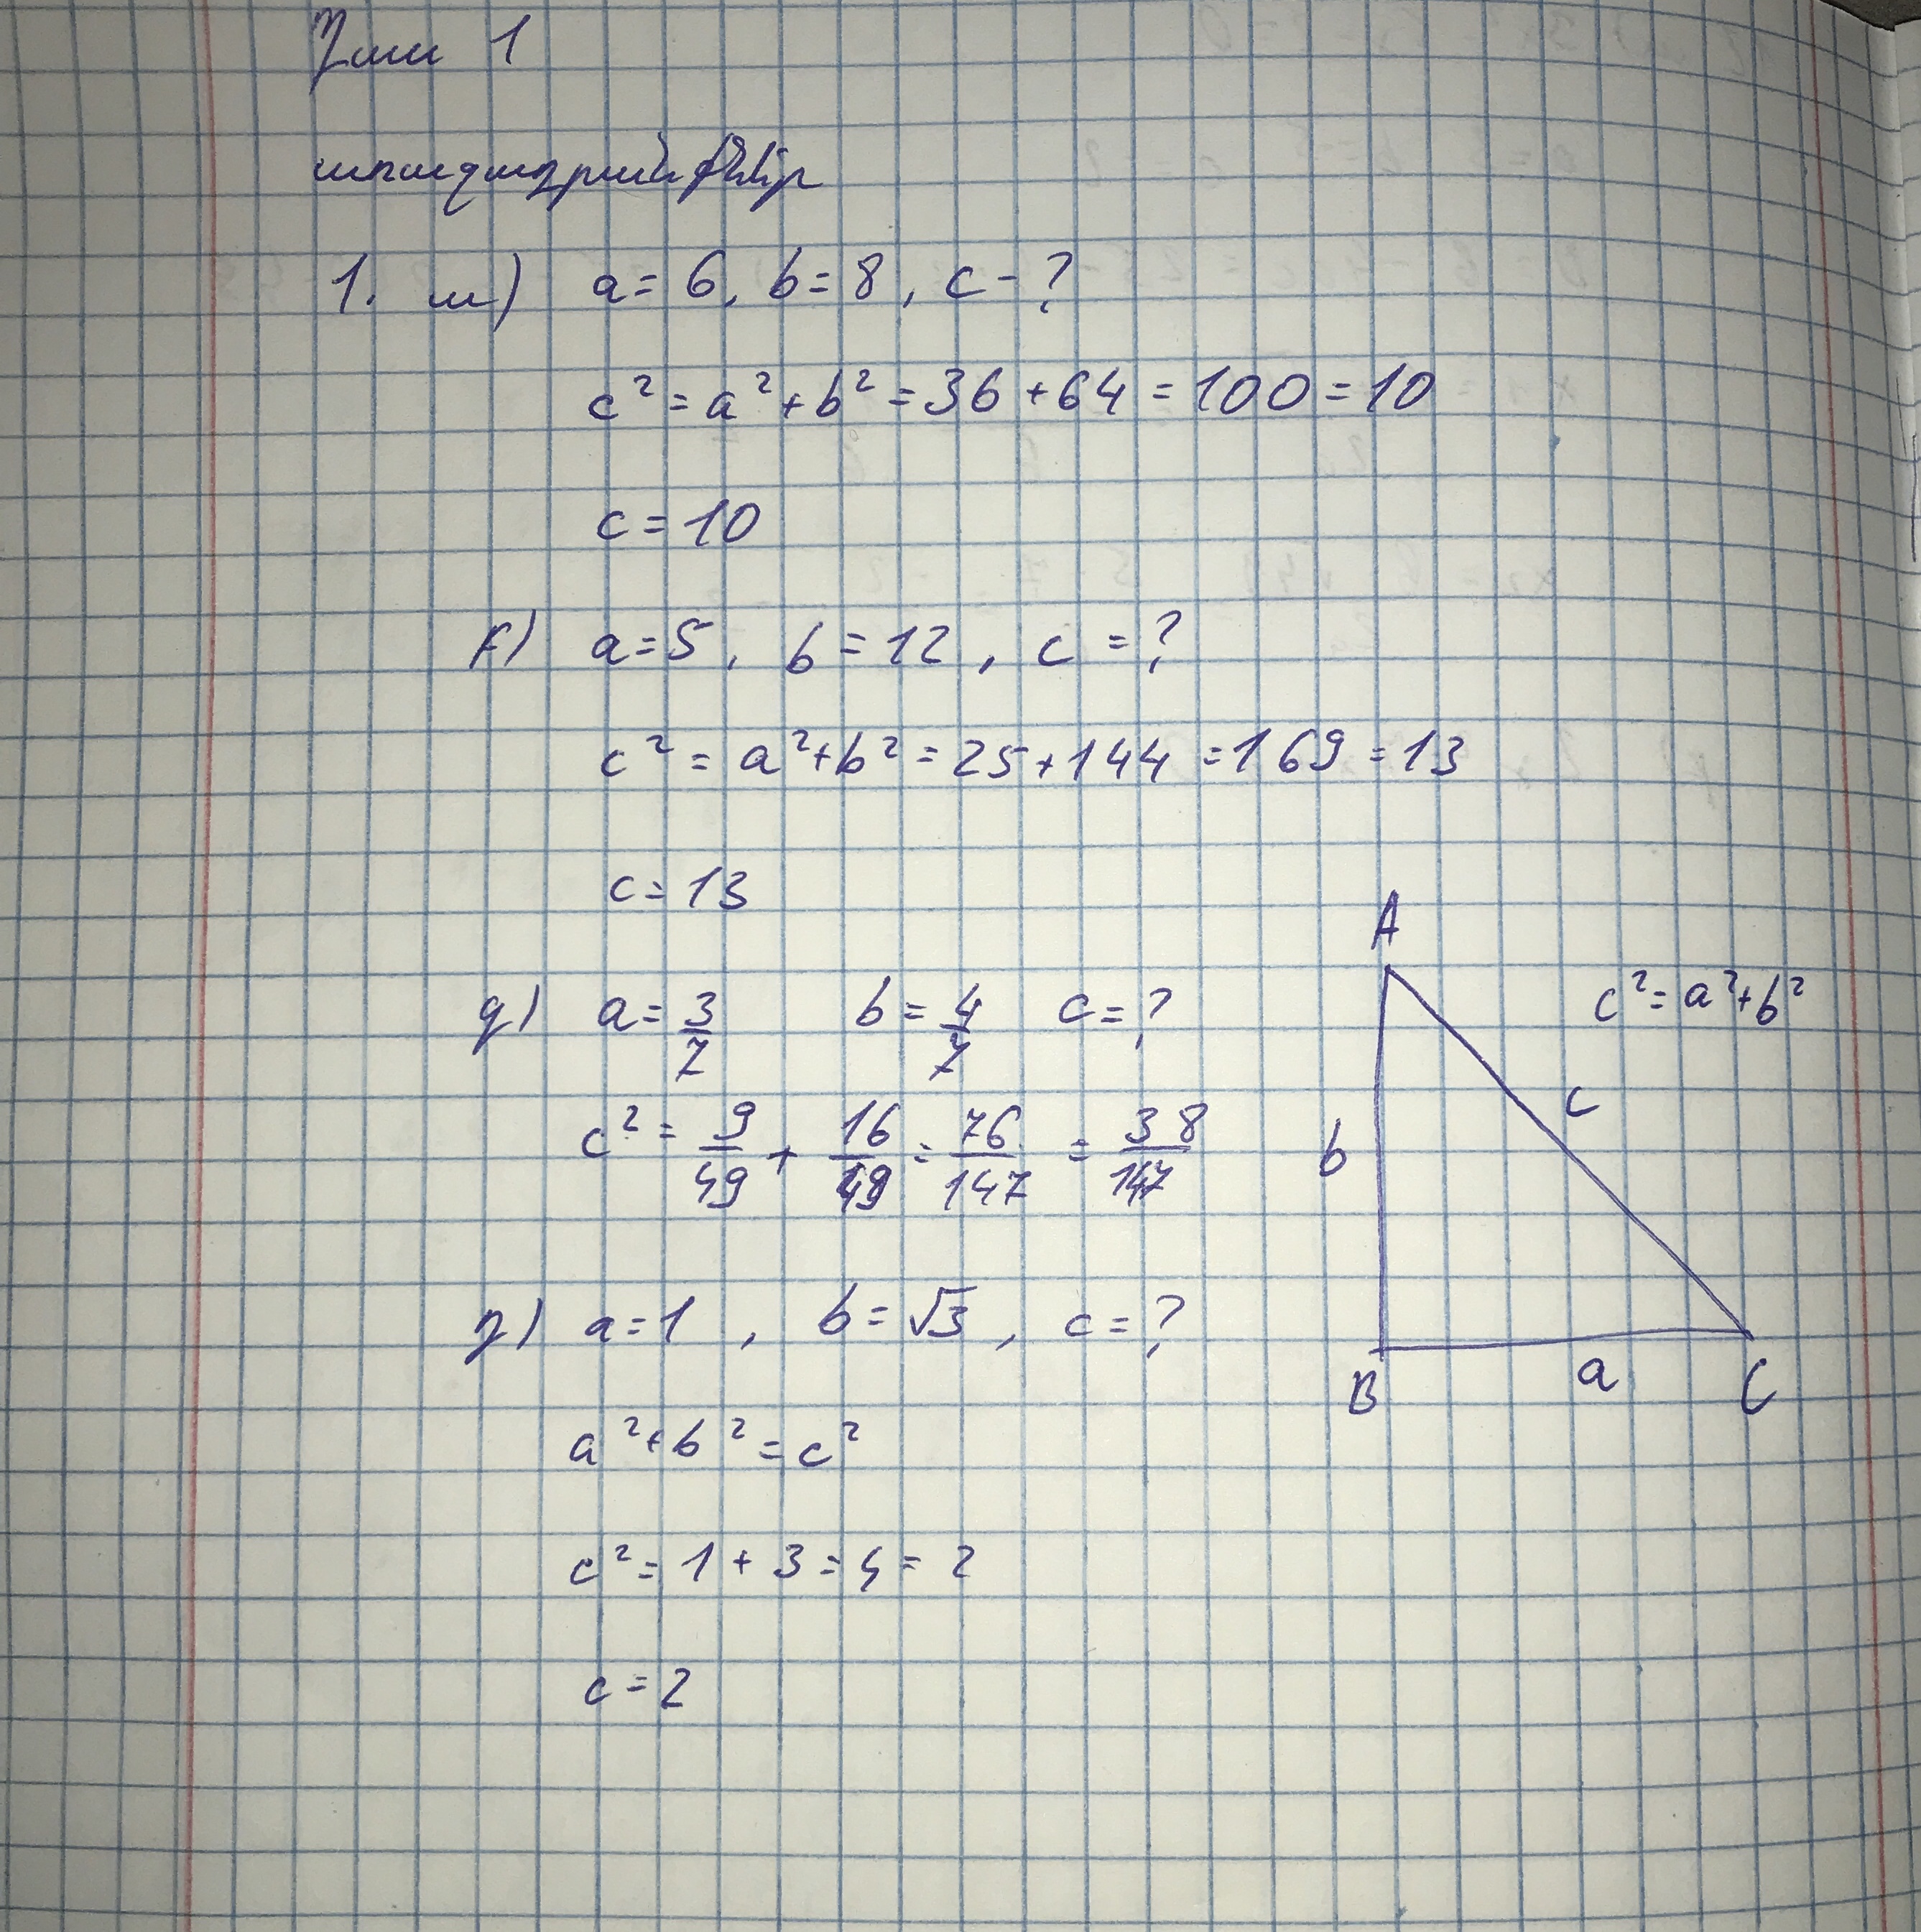 Դաս 1
առաջադրանքներ
1. ա) a = 6, b = 8, c - ?
c² = a² + b² = 36 + 64 = 100 = 10
c = 10
բ) a = 5, b = 12, c = ?
c² = a² + b² = 25 + 144 = 169 = 13
c = 13
գ) a = 3/7 b = 4/7 c = ?
c² = 9/49 + 16/49 = 76/147 = 38/147
դ) a = 1, b = √3, c = ?
a² + b² = c²
c² = 1 + 3 = 4 = 2
c = 2
A
c² = a² + b²
c
b
B a C